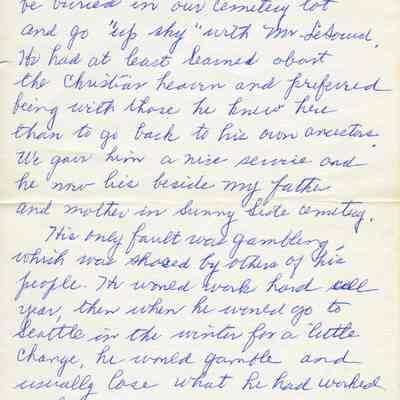 be buried in our cemetery lot
and go "up sky" with Mr. LeSourd.
He had at least learned about
the Christian heaven and preferred
being with those he knew here
than to go back to his own ancestors.
We gave him a nice service and
he now lies beside my father
and mother in Sunny Side cemetery.
His only fault was gambling,
which was shared by others of his
people. He would work hard all
year, then when he would go to
Seattle in the winter for a little
change, he would gamble and
usually lose what he had worked